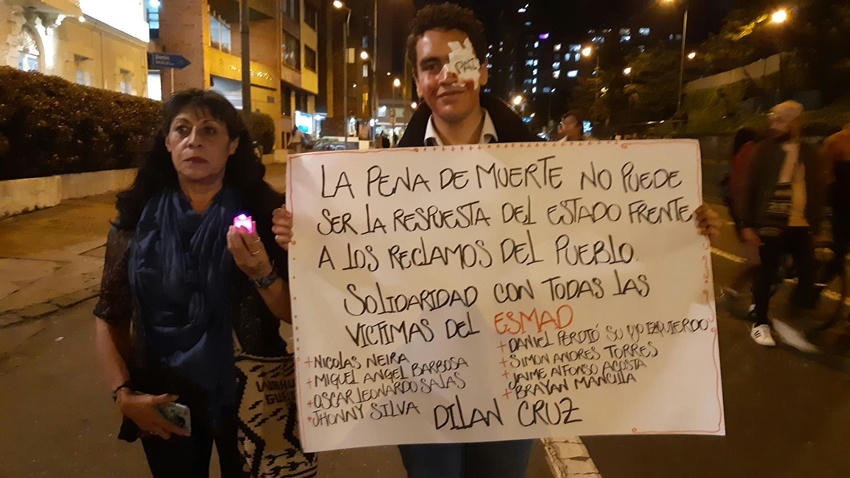 LA PENA DE MUERTE NO PUEDE
SER LA RESPUESTA DEL ESTADO FRENTE
A LOS RECLAMOS DEL PUEBLO.
SOLIDARIDAD CON TODAS LAS
VÍCTIMAS DEL ESMAD
+NICOLAS NEIRA
+MIGUEL ANGEL BARBOSA
+OSCAR LEONARDO SALAS
+JHONNY SILVA
+DANIEL PERDIÓ SU OJO IZQUIERDO
+SIMON ANDRES TORRES
+JAIME ALFONSO ACOSTA
+BRAYAN MANCILLA
DILAN CRUZ